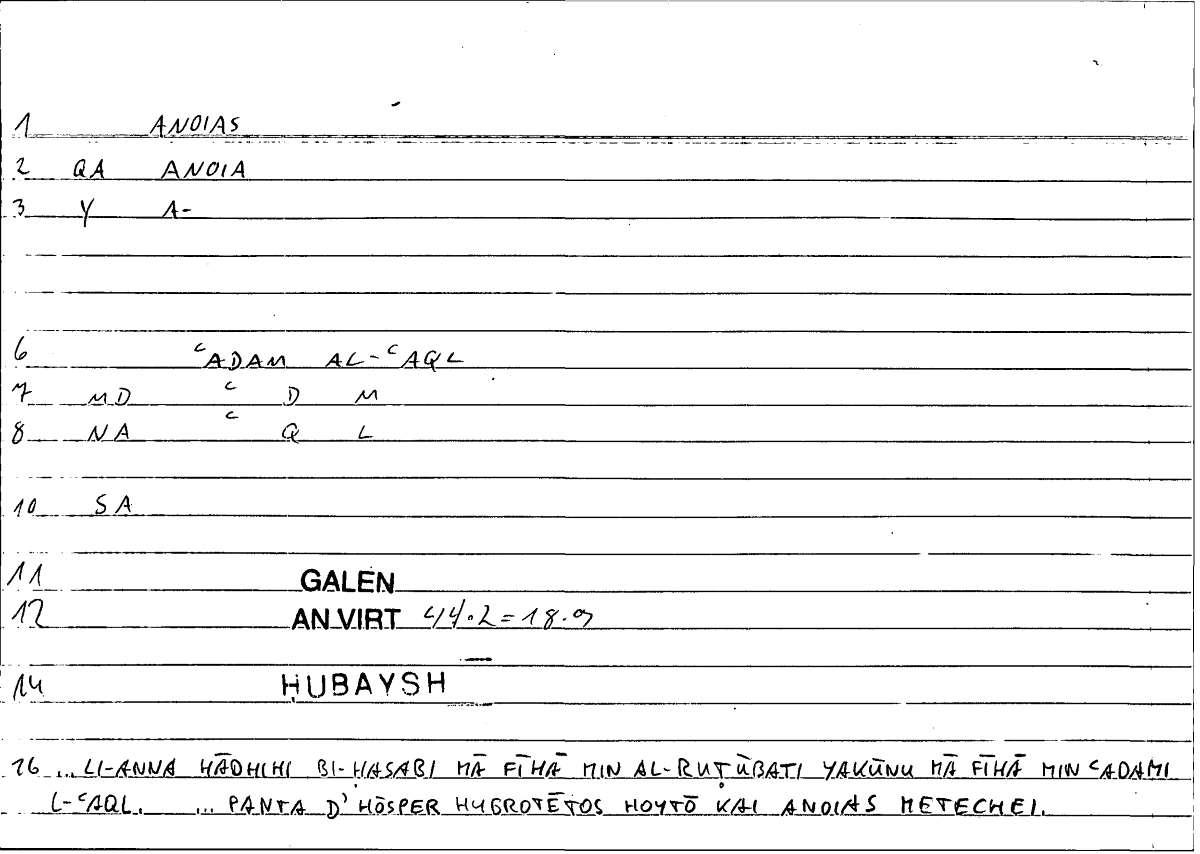 1 ANOIAS
2 QA ANOIA
3 Y A-
6 ʿADAM AL-ʿAQL
7 MD ʿ D M
8 NA ʿ Q L
10 SA
11 GALEN
12 AN VIRT 44.2=18.9
14 ḤUBAYSH
16 ... LI-ANNA HĀDHIHI BI-ḤASABI MĀ FĪHĀ MIN AL-RUṬŪBATI YAKŪNU MĀ FĪHĀ MIN ʿADAMI
L-ʿAQL. ... PANTA D' HŌSPER HYGROTĒTOS HOYTŌ KAI ANOIAS METECHEI.